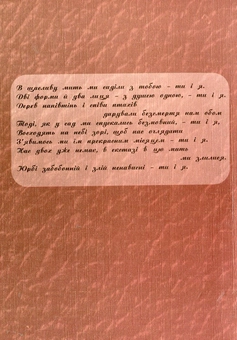 В щасливу мить ми сиділи з тобою – ти і я,
Дві форми й два лиця – з душею одною, – ти і я.
Дерев напівтінь і співи птахів
дарували безсмертя нам обом
Тоді, як у сад ми спускались безмовний, – ти і я.
Восходять на небі зорі, щоб нас оглядати
З'явимось ми їм прекрасним місяцем – ти і я.
Нас двох вже немає, в екстазі в цю мить
ми злилися,
Юрбі забобонній і злій ненависні – ти і я.